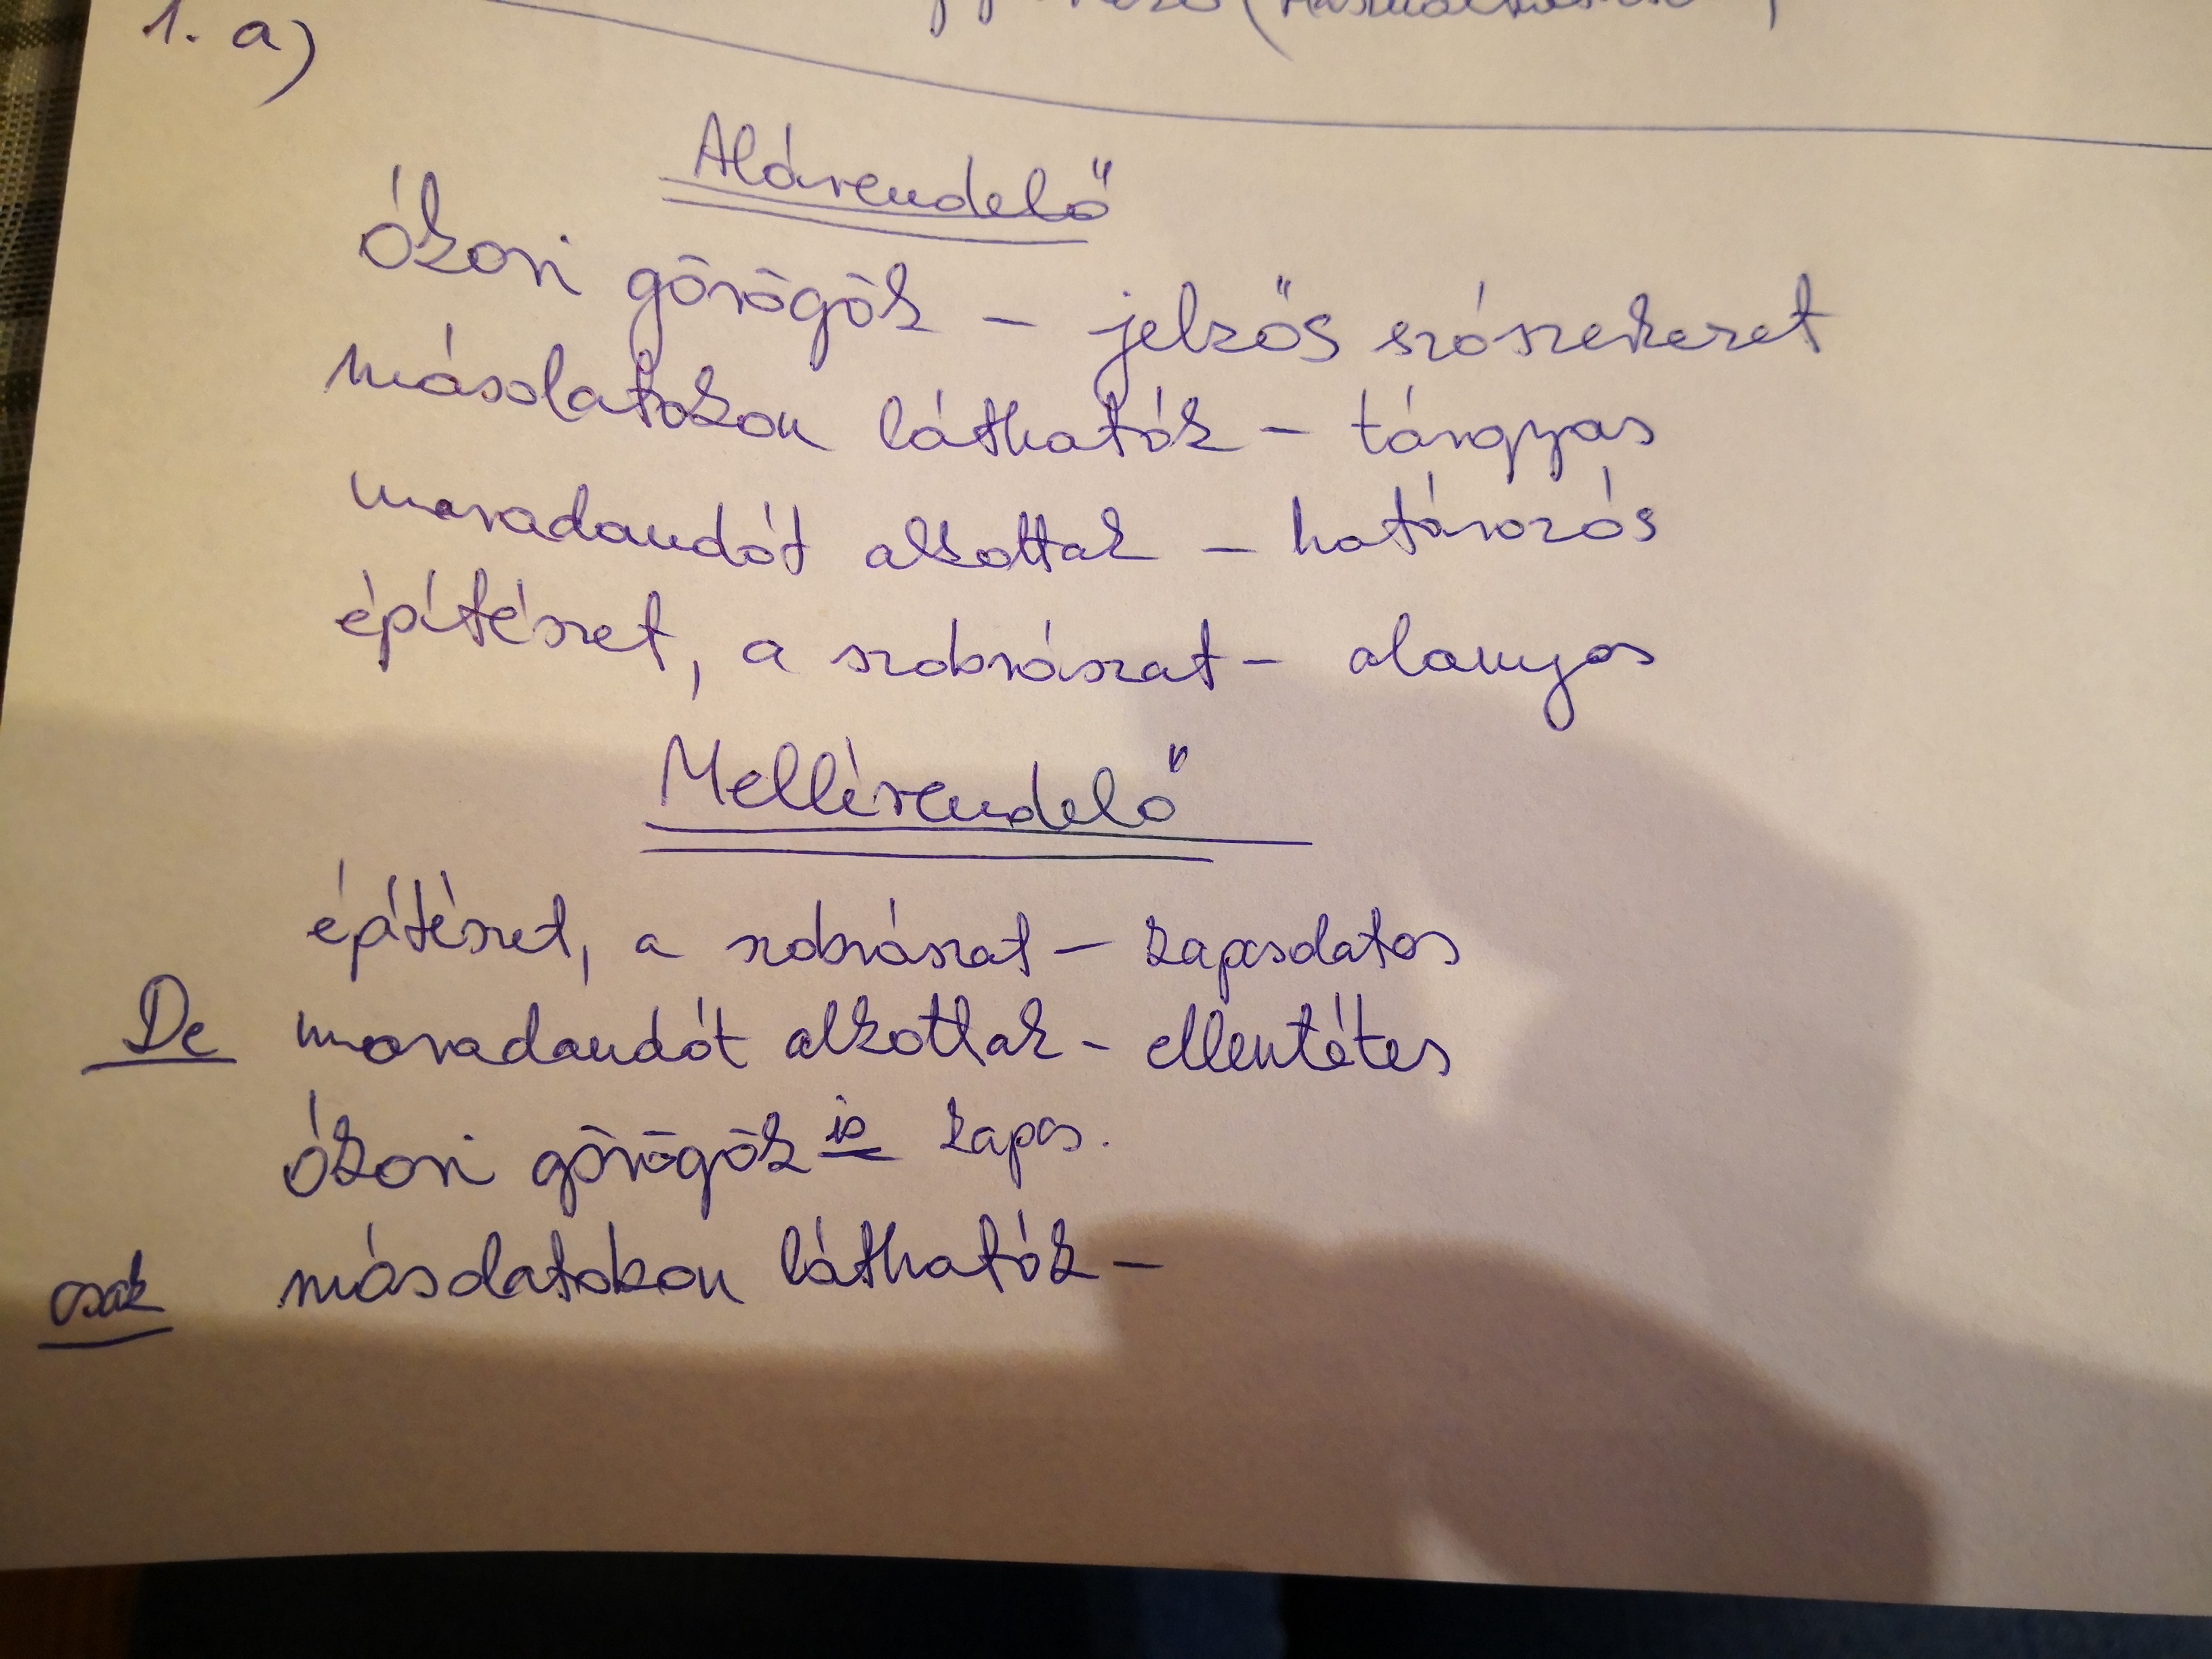 1. a)
Alárendelő
Ókori görögök – jelzős szószerkezet
másolatokon láthatók – tárgyas
maradandót alkottak – határozós
építészet, a szobrászat – alanyos
Mellérendelő
építészet, a szobrászat – kapcsolatos
De maradandót alkottak – ellentétes
ókori görögök is kapcs.
csak másolatokon láthatók –